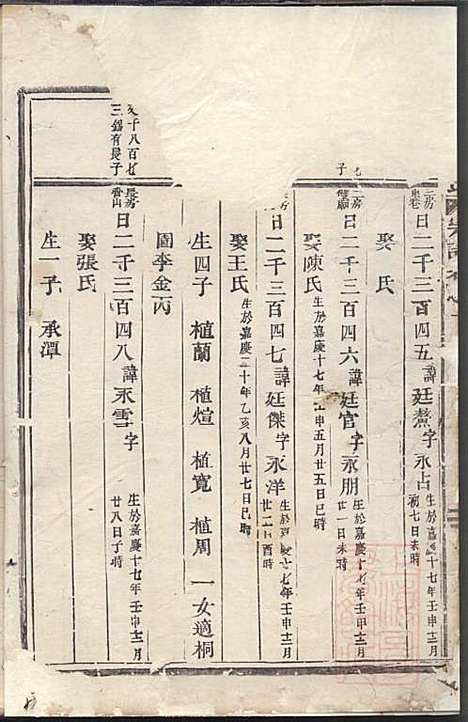 二房
曰二千三百四五諱廷鰲字永占生於嘉慶十七年壬申十二月初七日未時
娶 氏
二房
曰二千三百四六諱廷官字永朋生於嘉慶十七年壬申十二月廿一日未時
娶陳氏生於嘉慶十七年壬申五月廿五日巳時
曰二千三百四七諱廷傑字永洋生於嘉慶十七年壬申十二月廿二日酉時
娶王氏生於嘉慶二十年乙亥八月廿七日巳時
生四子 植蘭 植煊 植寬 植周 一女適桐
園李金丙
長房
曰二千三百四八諱永雲字 生於嘉慶十七年壬申十二月廿八日子時
娶張氏
生一子 承潭
千八百七
三錫有長子
子